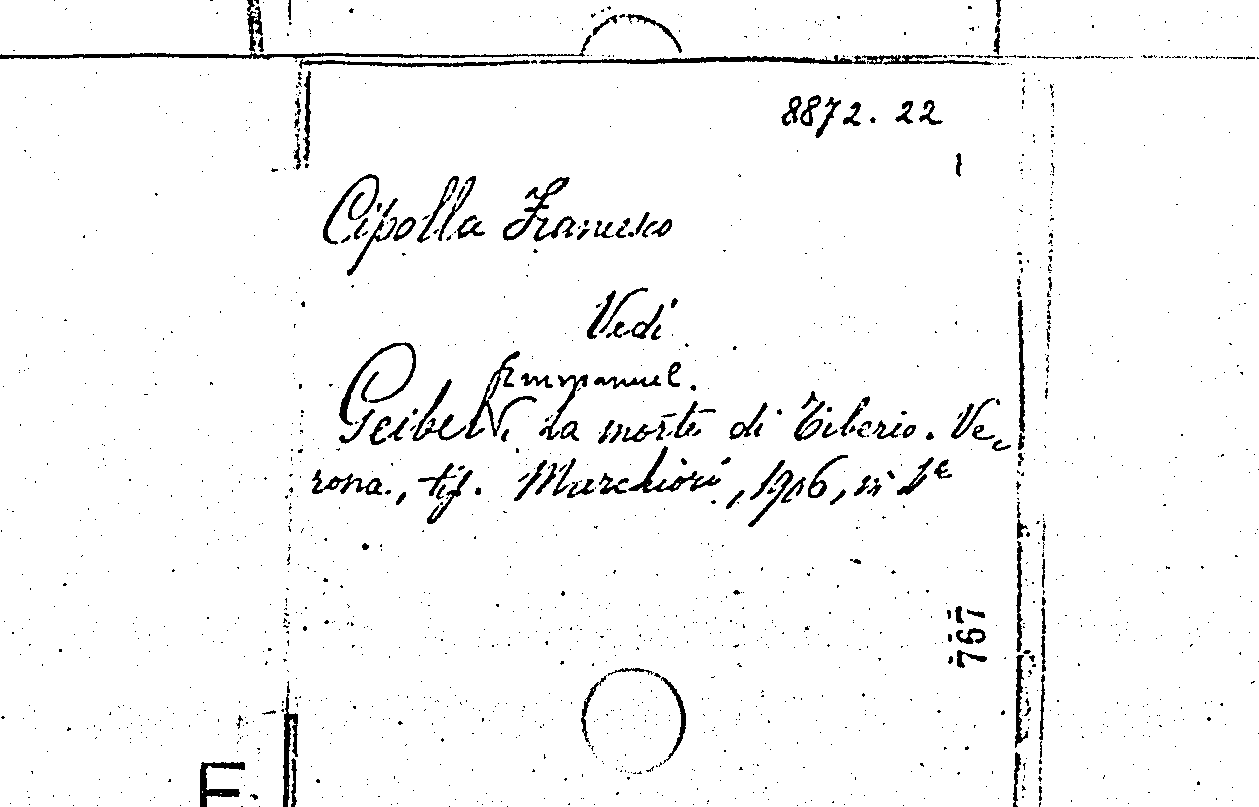 8872. 22
Cipolla Francesco
Vedi
Emmanuel.
Geibel, La morte di Tiberio. Ve-
rona, tip. Marchiori, 1906, in 4º
767
E